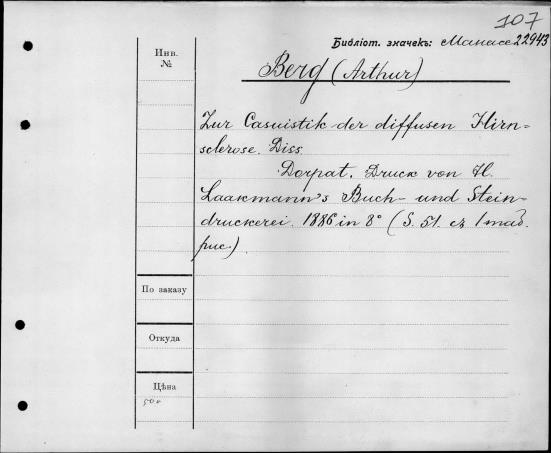 107
Библіот. значекъ: Манасе 22943
Инв.
№
Berg (Arthur)
Zur Casuistik der diffusen Hirn=
sclerose. Diss.
Dorpat, Druck von H.
Laakmann's Buch- und Stein-
druckerei. 1886 in 8° (S. 51. съ 1 таб.
рис.)
По заказу
Откуда
Цѣна
50 к